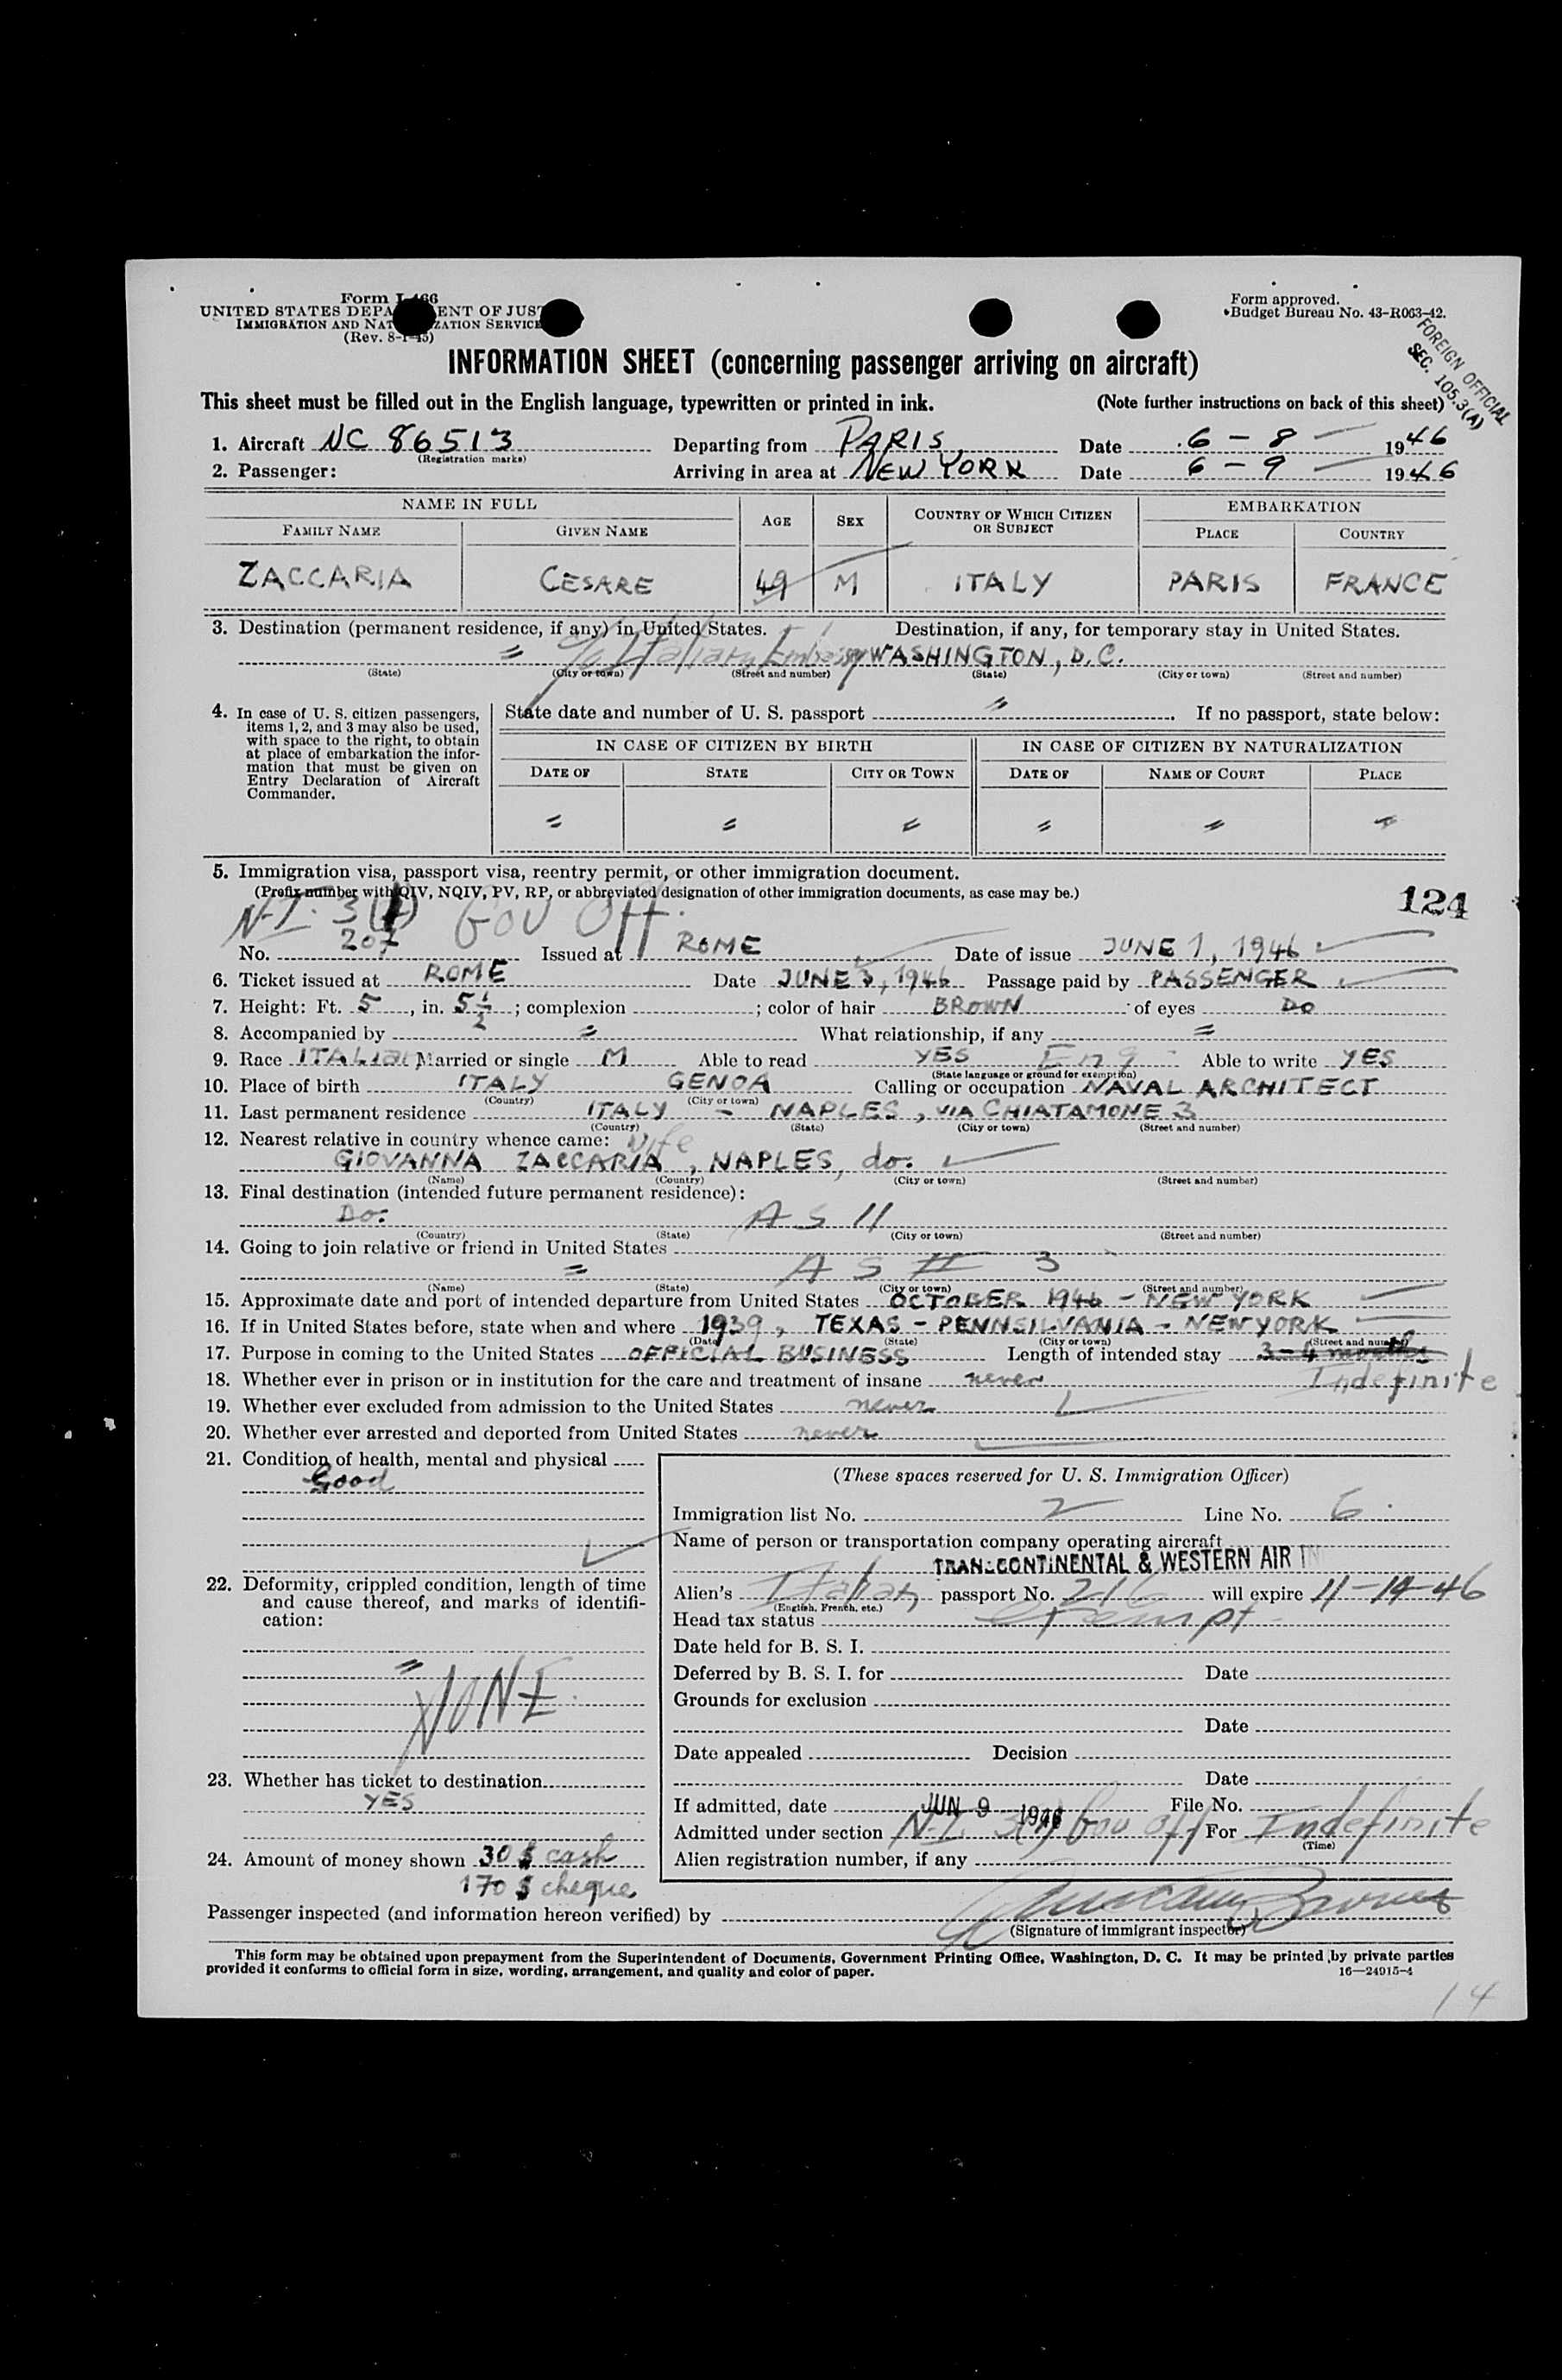 Form I-466
UNITED STATES DEPA ENT OF JUST
IMMIGRATION AND NAT ZATION SERVICE
(Rev. 8-1-45)
Form approved.
Budget Bureau No. 43-R063-42.
FOREIGN OFFICIAL
SEC. 105.3(A)
INFORMATION SHEET (concerning passenger arriving on aircraft)
This sheet must be filled out in the English language, typewritten or printed in ink. (Note further instructions on back of this sheet)
1. Aircraft NC 86513 Departing from PARIS Date 6-8- 1946
(Registration marks)
2. Passenger: Arriving in area at NEW YORK Date 6-9- 1946
NAME IN FULL AGE SEX COUNTRY OF WHICH CITIZEN OR SUBJECT EMBARKATION
FAMILY NAME GIVEN NAME PLACE COUNTRY
ZACCARIA CESARE 49 M ITALY PARIS FRANCE
3. Destination (permanent residence, if any) in United States. Destination, if any, for temporary stay in United States.
= c/o Italian Embassy WASHINGTON, D.C.
(State) (City or town) (Street and number) (State) (City or town) (Street and number)
4. In case of U. S. citizen passengers, items 1, 2, and 3 may also be used, with space to the right, to obtain at place of embarkation the information that must be given on Entry Declaration of Aircraft Commander.
State date and number of U. S. passport = . If no passport, state below:
IN CASE OF CITIZEN BY BIRTH IN CASE OF CITIZEN BY NATURALIZATION
DATE OF STATE CITY OR TOWN DATE OF NAME OF COURT PLACE
= = = = = =
5. Immigration visa, passport visa, reentry permit, or other immigration document.
(Prefix number with QIV, NQIV, PV, RP, or abbreviated designation of other immigration documents, as case may be.)
124
N-I. 3(1) Gov Off.
No. 207 Issued at ROME Date of issue JUNE 1, 1946
6. Ticket issued at ROME Date JUNE 3, 1946 Passage paid by PASSENGER
7. Height: Ft. 5, in. 5 1/2; complexion ; color of hair BROWN of eyes DO
8. Accompanied by = What relationship, if any =
9. Race ITALIAN Married or single M Able to read YES Eng Able to write YES
(State language or ground for exemption)
10. Place of birth ITALY GENOA Calling or occupation NAVAL ARCHITECT
(Country) (City or town)
11. Last permanent residence ITALY - NAPLES, VIA CHIATAMONE 3
(Country) (State) (City or town) (Street and number)
12. Nearest relative in country whence came: Wife
GIOVANNA ZACCARIA, NAPLES, do.
(Name) (Country) (City or town) (Street and number)
13. Final destination (intended future permanent residence):
Do. AS 11
(Country) (State) (City or town) (Street and number)
14. Going to join relative or friend in United States
= AS # 3
(Name) (State) (City or town) (Street and number)
15. Approximate date and port of intended departure from United States OCTOBER 1946 - NEW YORK
16. If in United States before, state when and where 1939, TEXAS - PENNSILVANIA - NEW YORK
(Date) (State) (City or town) (Street and number)
17. Purpose in coming to the United States OFFICIAL BUSINESS Length of intended stay 3-4 months
18. Whether ever in prison or in institution for the care and treatment of insane never Indefinite
19. Whether ever excluded from admission to the United States never
20. Whether ever arrested and deported from United States never
21. Condition of health, mental and physical
Good
22. Deformity, crippled condition, length of time and cause thereof, and marks of identification:
=
NONE
23. Whether has ticket to destination
YES
24. Amount of money shown 30 $ cash
170 $ cheque
(These spaces reserved for U. S. Immigration Officer)
Immigration list No. 2 Line No. 6
Name of person or transportation company operating aircraft
TRANSCONTINENTAL & WESTERN AIR IN
Alien's Italian passport No. 216 will expire 11-14-46
(English, French, etc.)
Head tax status Exempt
Date held for B. S. I.
Deferred by B. S. I. for Date
Grounds for exclusion
Date
Date appealed Decision
Date
If admitted, date JUN 9 1946 File No.
Admitted under section N-I. 3(1) Gov Off For Indefinite
(Time)
Alien registration number, if any
Passenger inspected (and information hereon verified) by
(Signature of immigrant inspector)
This form may be obtained upon prepayment from the Superintendent of Documents, Government Printing Office, Washington, D. C. It may be printed by private parties
provided it conforms to official form in size, wording, arrangement, and quality and color of paper. 16—24915-4
14